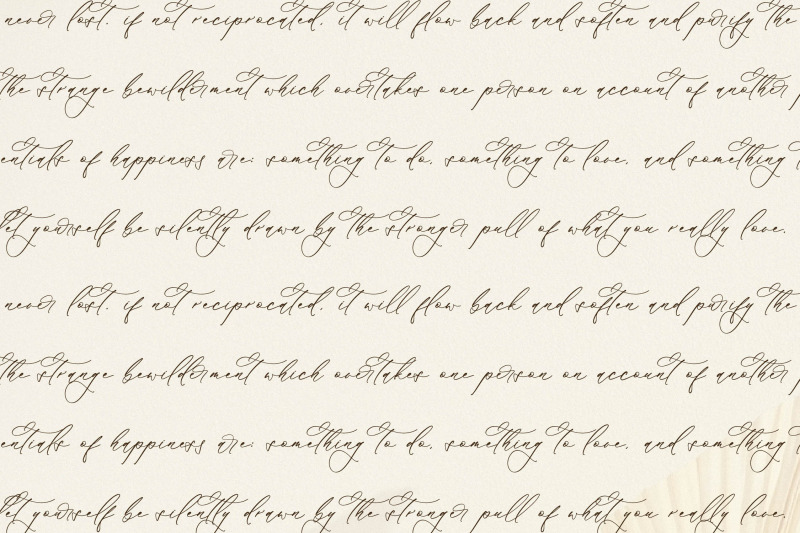 never lost. if not reciprocated, it will flow back and soften and purify the
the strange bewilderment which overtakes one person on account of another
entials of happiness are: something to do, something to love, and something
let yourself be silently drawn by the stronger pull of what you really love.
never lost. if not reciprocated, it will flow back and soften and purify the
the strange bewilderment which overtakes one person on account of another
entials of happiness are: something to do, something to love, and something
let yourself be silently drawn by the stronger pull of what you really love.